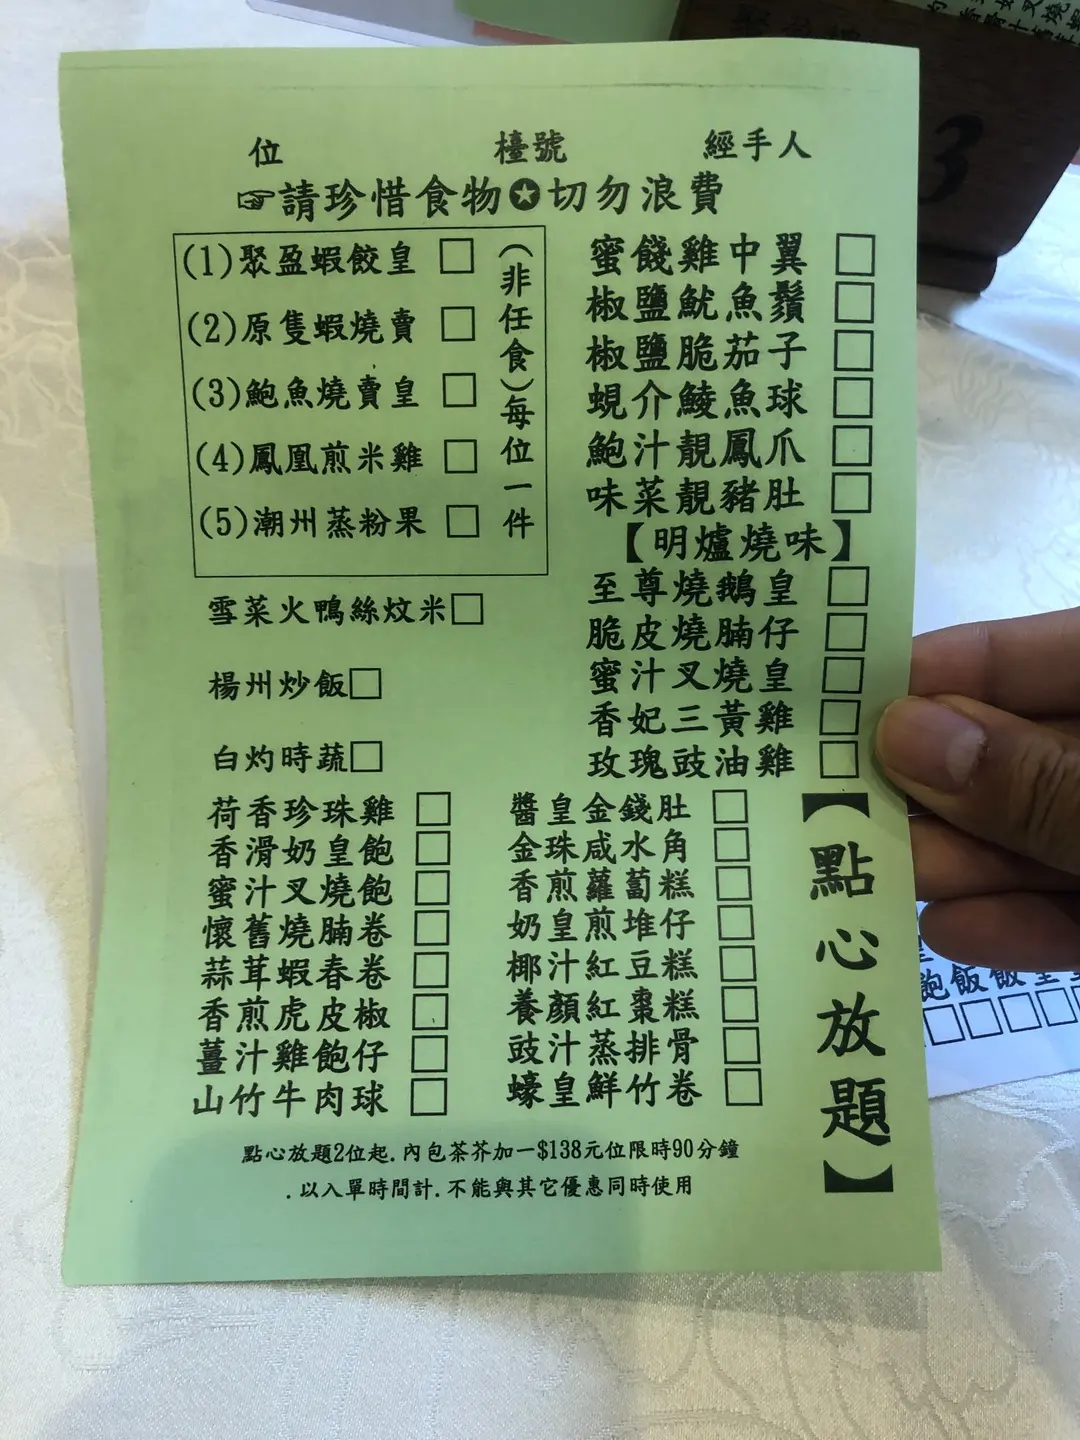 位 檯號 經手人
☞請珍惜食物✪切勿浪費
(1)聚盈蝦餃皇 □
(2)原隻蝦燒賣 □
(3)鮑魚燒賣皇 □
(4)鳳凰煎米雞 □
(5)潮州蒸粉果 □
(非任食)每位一件
雪菜火鴨絲炆米□
楊州炒飯□
白灼時蔬□
蜜餞雞中翼 □
椒鹽魷魚鬚 □
椒鹽脆茄子 □
蜆介鯪魚球 □
鮑汁靚鳳爪 □
味菜靚豬肚 □
【明爐燒味】
至尊燒鵝皇 □
脆皮燒腩仔 □
蜜汁叉燒皇 □
香妃三黃雞 □
玫瑰豉油雞 □
荷香珍珠雞 □
香滑奶皇飽 □
蜜汁叉燒飽 □
懷舊燒腩卷 □
蒜茸蝦春卷 □
香煎虎皮椒 □
薑汁雞飽仔 □
山竹牛肉球 □
醬皇金錢肚 □
金珠咸水角 □
香煎蘿蔔糕 □
奶皇煎堆仔 □
椰汁紅豆糕 □
養顏紅棗糕 □
豉汁蒸排骨 □
蠔皇鮮竹卷 □
【點心放題】
點心放題2位起.內包茶芥加一$138元位限時90分鐘
.以入單時間計.不能與其它優惠同時使用
3
飽飯飯